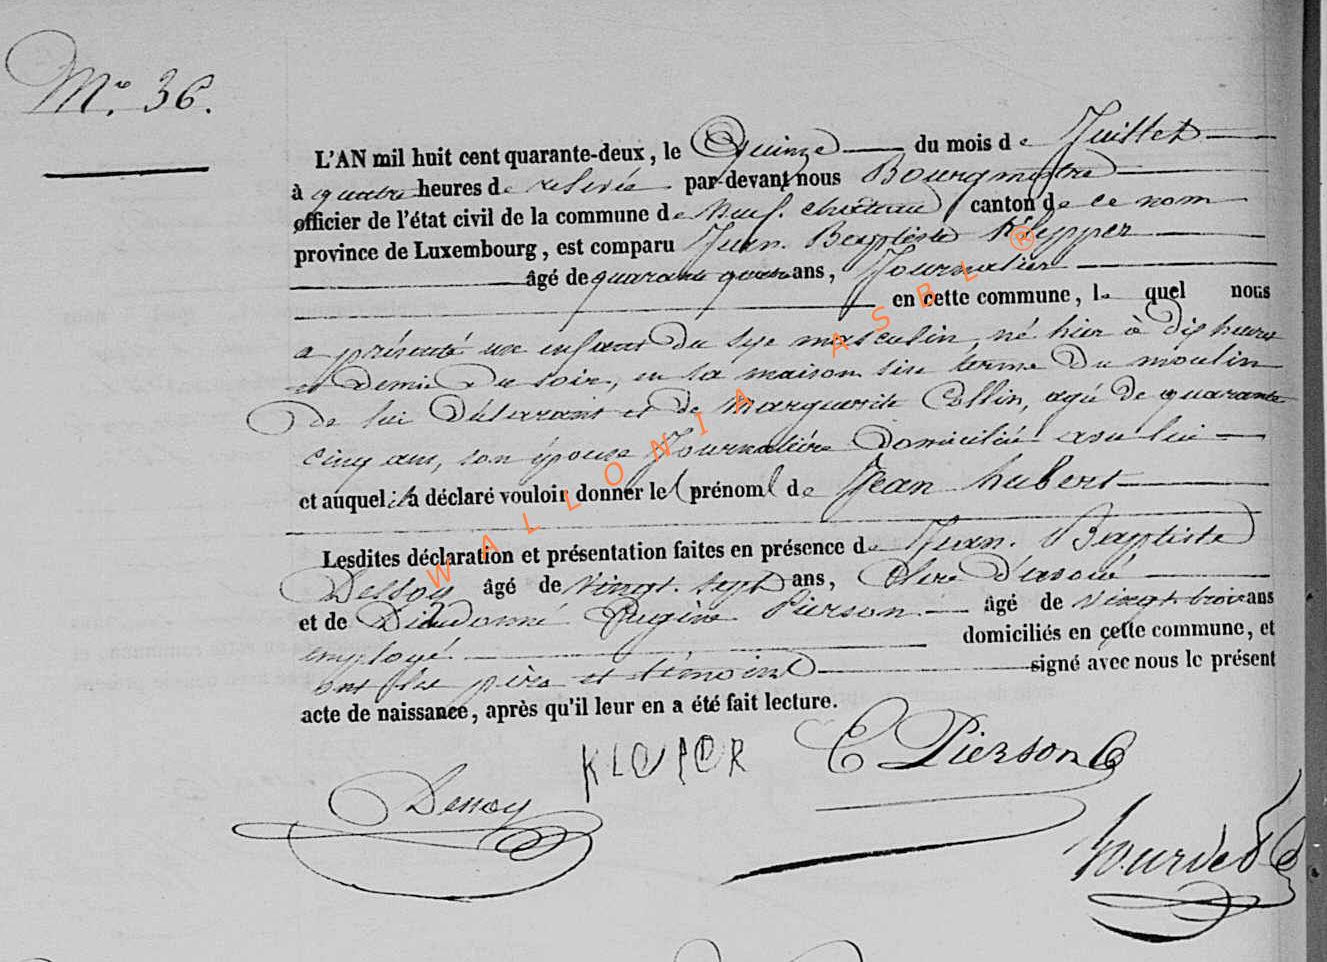 N.° 36.
L'AN mil huit cent quarante-deux, le Quinze du mois de Juillet
à quatre heures de relevée par-devant nous Bourgmestre
officier de l'état civil de la commune de Neuf-château canton de ce nom
province de Luxembourg, est comparu Jean-Baptiste Klepper
âgé de quarante ans, Journalier
en cette commune, lequel nous
a présenté un enfant du sexe masculin, né hier à dix heures
et demie du soir, en sa maison sise terme du moulin
De lui Déclarant et de Marguerite Collin, agée de quarante
cinq ans, son épouse Journalière Domiciliée avec lui
et auquel il a déclaré vouloir donner le prénom de Jean hubert
Lesdites déclaration et présentation faites en présence de Jean-Baptiste
Dessoy âgé de vingt-sept ans, Clerc D'avoué
et de Dieudonné Eugène Pierson âgé de vingt trois ans
employé domiciliés en cette commune, et
ont les père et témoins signé avec nous le présent
acte de naissance, après qu'il leur en a été fait lecture.
KLOPER
E Pierson
Dessoy
WALLONIA ASBL ®